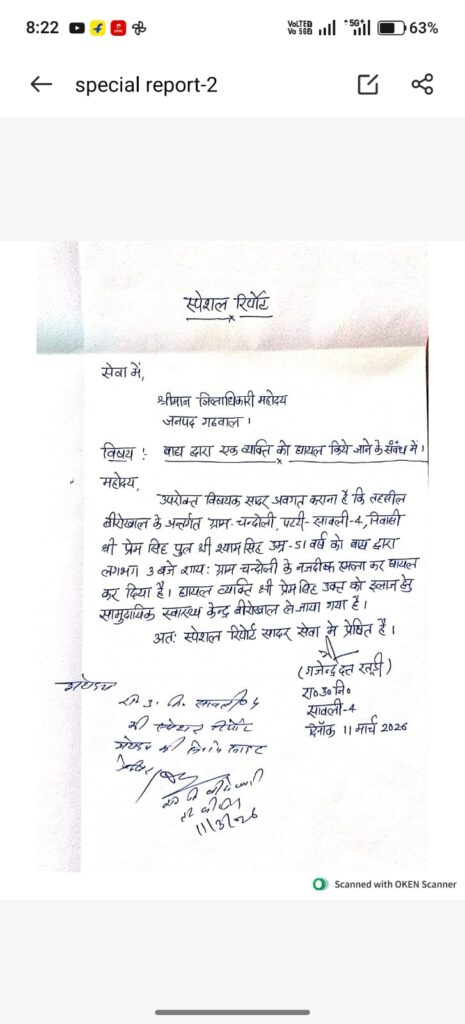 8:22
VoLTED
Vo 5G
5G
63%
special report-2
स्पेशल रिपोर्ट
सेवा में,
श्रीमान जिलाधिकारी महोदय
जनपद गढवाल ।
विषय : बाघ द्वारा एक व्यक्ति को घायल किये जाने के संबंध में ।
महोदय,
उपरोक्त विषयक सादर अवगत कराना है कि तहसील
बीरोंखाल के अन्तर्गत ग्राम-चन्दोली, पट्टी-सावली-4, निवासी
श्री प्रेम सिंह पुत्र श्री श्याम सिंह उम्र-51 वर्ष को बाघ द्वारा
लगभग 3 बजे शाय: ग्राम चन्दोली के नजदीक हमला कर घायल
कर दिया है। घायल व्यक्ति श्री प्रेम सिंह उक्त को इलाज हेतु
सामुदायिक स्वास्थ्य केन्द्र बीरोंखाल ले जाया गया है।
अतः स्पेशल रिपोर्ट सादर सेवा में प्रेषित है।
(गजेन्द्र दत्त रतूडी)
रा०उ०नि०
सावली-4
दिनाँक 11 मार्च 2026
रा. उ. नि. सावली
की स्पेशल रिपोर्ट
11/3/26
Scanned with OKEN Scanner